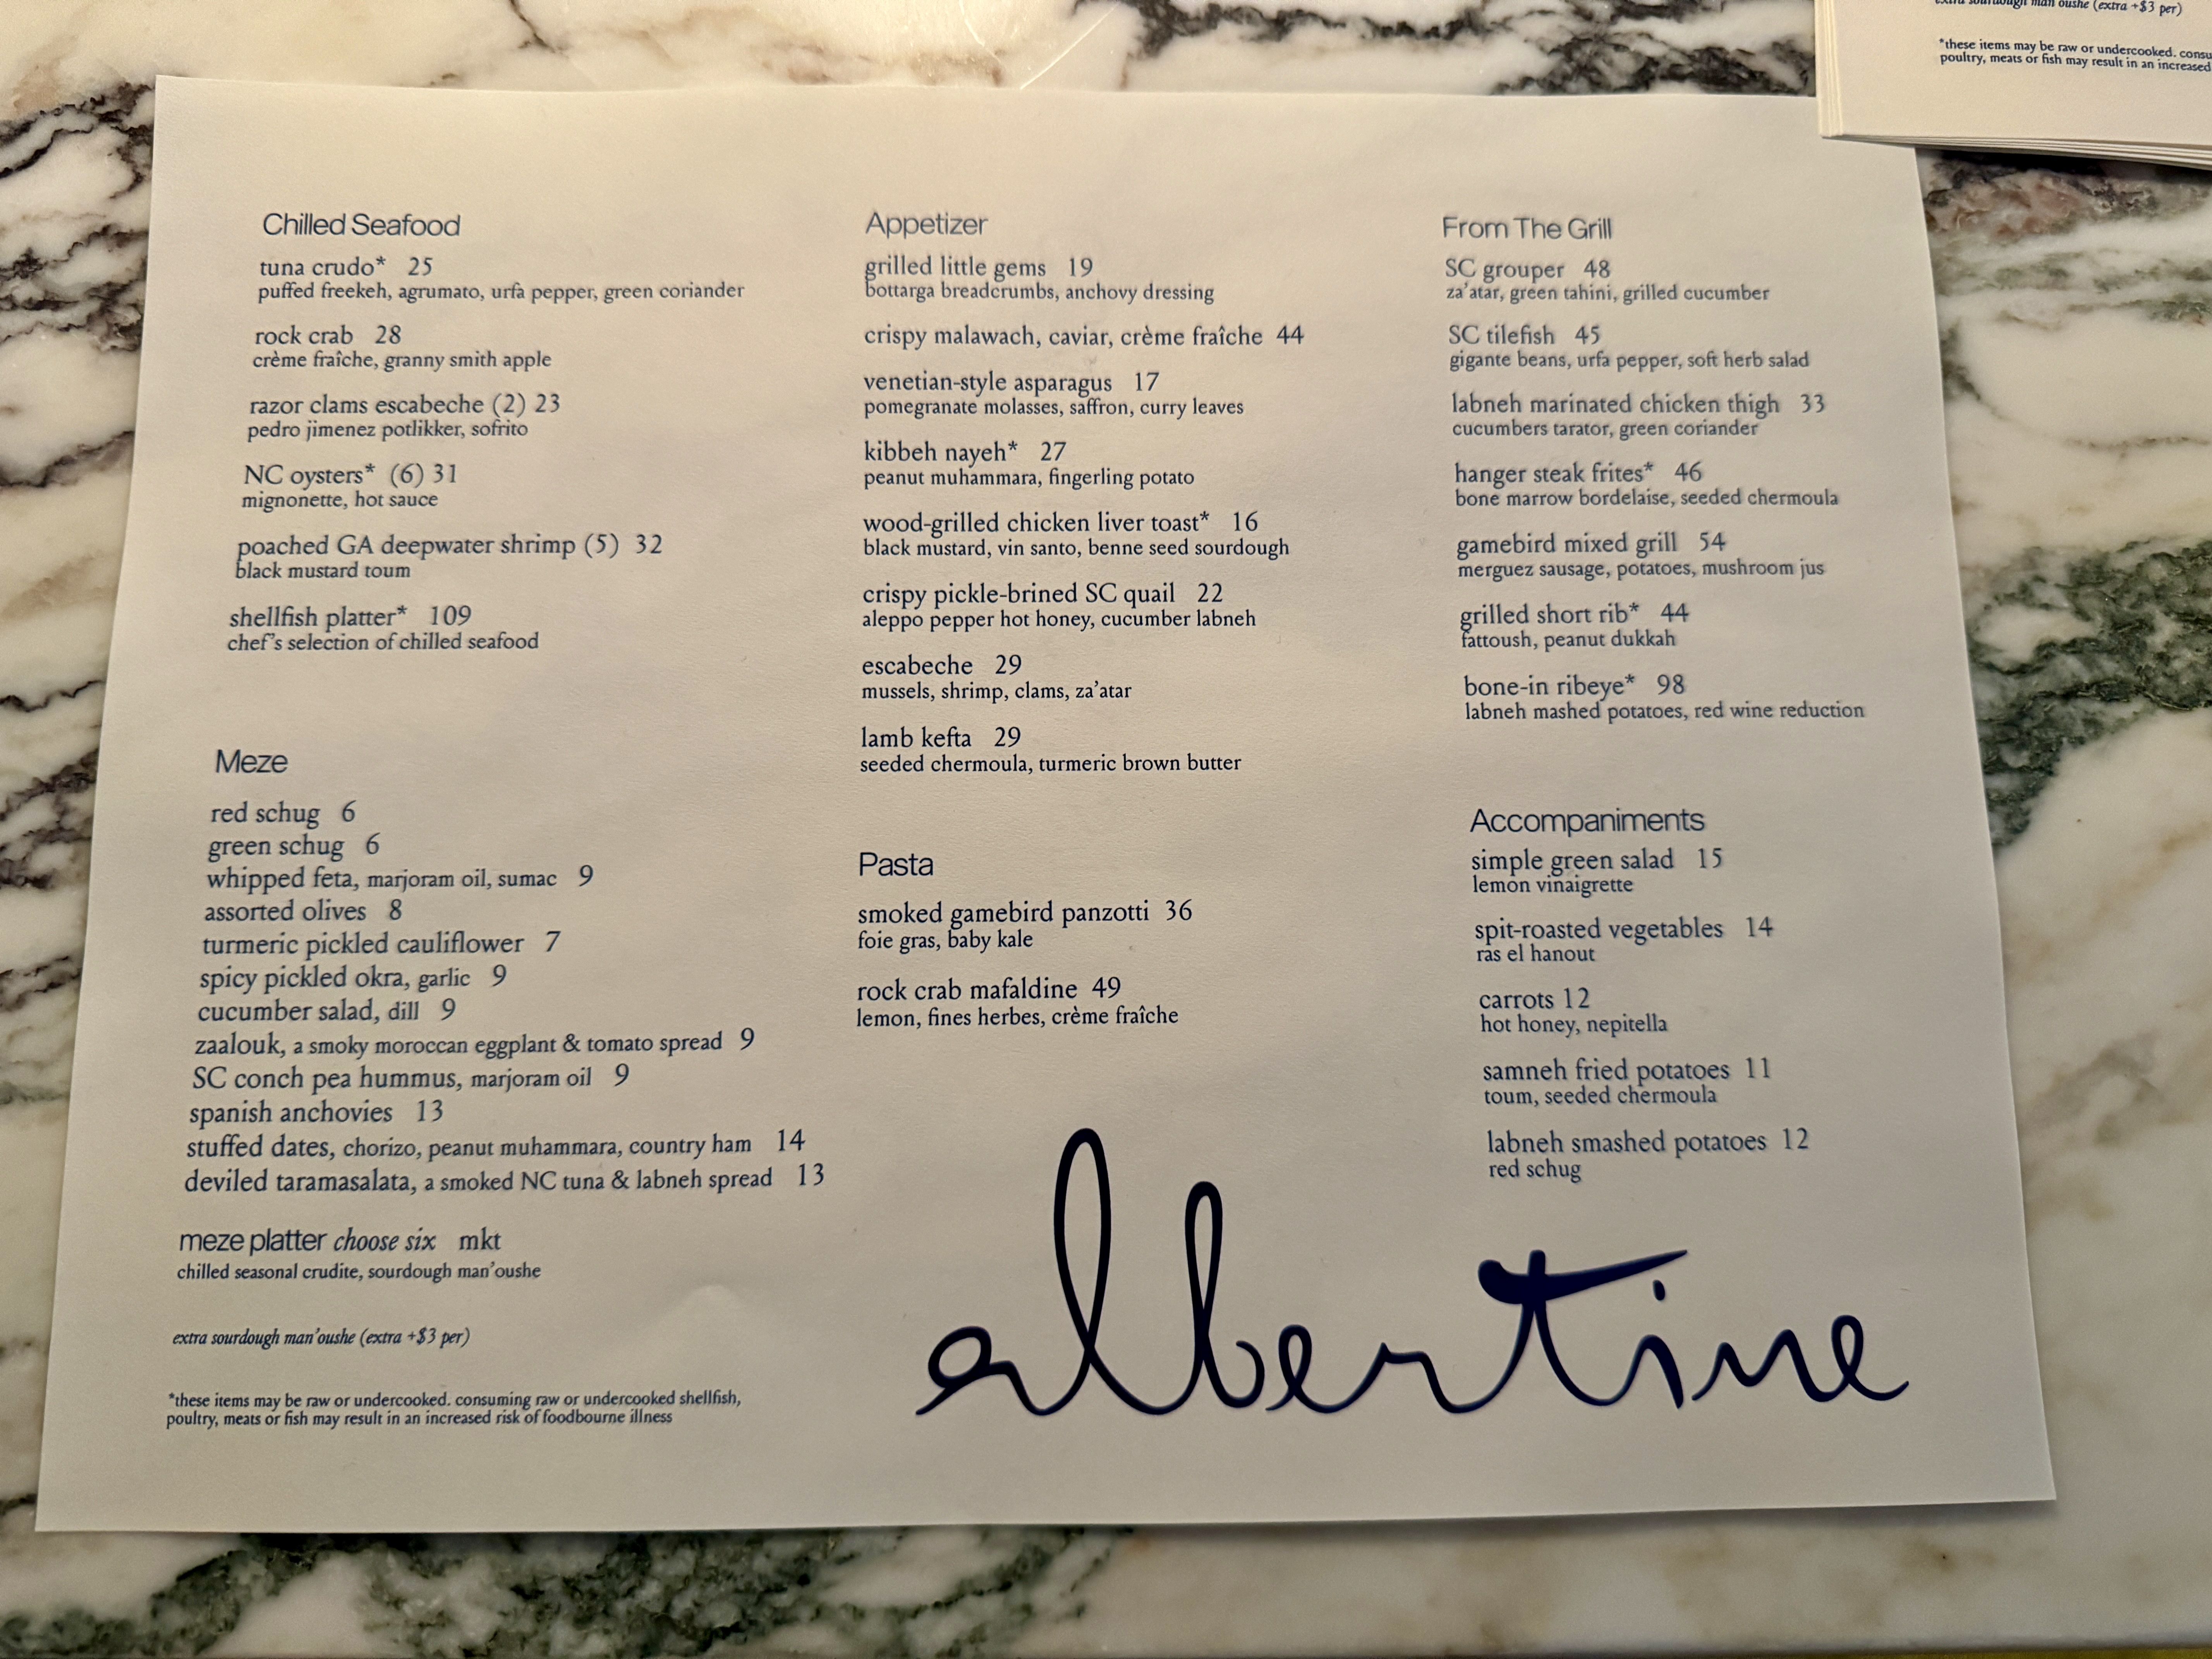 Chilled Seafood
tuna crudo* 25
puffed freekeh, agrumato, urfa pepper, green coriander
rock crab 28
crème fraîche, granny smith apple
razor clams escabeche (2) 23
pedro jimenez potlikker, sofrito
NC oysters* (6) 31
mignonette, hot sauce
poached GA deepwater shrimp (5) 32
black mustard toum
shellfish platter* 109
chef's selection of chilled seafood
Meze
red schug 6
green schug 6
whipped feta, marjoram oil, sumac 9
assorted olives 8
turmeric pickled cauliflower 7
spicy pickled okra, garlic 9
cucumber salad, dill 9
zaalouk, a smoky moroccan eggplant & tomato spread 9
SC conch pea hummus, marjoram oil 9
spanish anchovies 13
stuffed dates, chorizo, peanut muhammara, country ham 14
deviled taramasalata, a smoked NC tuna & labneh spread 13
meze platter choose six mkt
chilled seasonal crudite, sourdough man'oushe
extra sourdough man'oushe (extra +$3 per)
*these items may be raw or undercooked. consuming raw or undercooked shellfish,
poultry, meats or fish may result in an increased risk of foodbourne illness
Appetizer
grilled little gems 19
bottarga breadcrumbs, anchovy dressing
crispy malawach, caviar, crème fraîche 44
venetian-style asparagus 17
pomegranate molasses, saffron, curry leaves
kibbeh nayeh* 27
peanut muhammara, fingerling potato
wood-grilled chicken liver toast* 16
black mustard, vin santo, benne seed sourdough
crispy pickle-brined SC quail 22
aleppo pepper hot honey, cucumber labneh
escabeche 29
mussels, shrimp, clams, za'atar
lamb kefta 29
seeded chermoula, turmeric brown butter
Pasta
smoked gamebird panzotti 36
foie gras, baby kale
rock crab mafaldine 49
lemon, fines herbes, crème fraîche
From The Grill
SC grouper 48
za'atar, green tahini, grilled cucumber
SC tilefish 45
gigante beans, urfa pepper, soft herb salad
labneh marinated chicken thigh 33
cucumbers tarator, green coriander
hanger steak frites* 46
bone marrow bordelaise, seeded chermoula
gamebird mixed grill 54
merguez sausage, potatoes, mushroom jus
grilled short rib* 44
fattoush, peanut dukkah
bone-in ribeye* 98
labneh mashed potatoes, red wine reduction
Accompaniments
simple green salad 15
lemon vinaigrette
spit-roasted vegetables 14
ras el hanout
carrots 12
hot honey, nepitella
samneh fried potatoes 11
toum, seeded chermoula
labneh smashed potatoes 12
red schug
albertine
extra sourdough man'oushe (extra +$3 per)
*these items may be raw or undercooked.
poultry, meats or fish may result in an increased